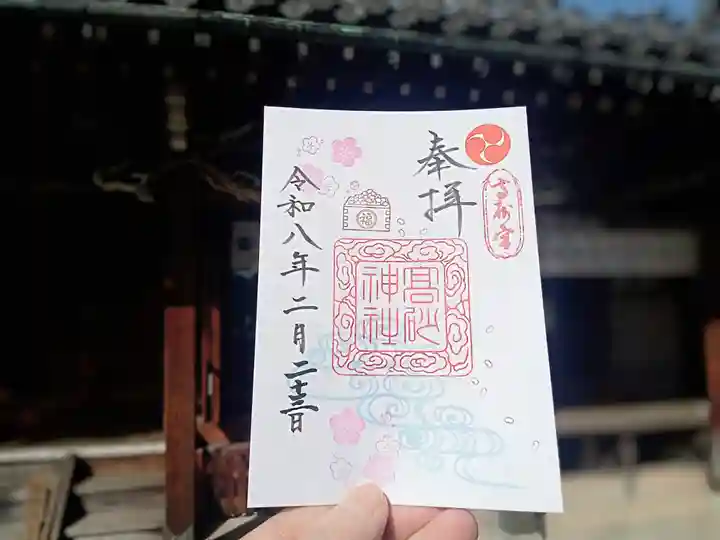 奉拝
福
高砂
神社
令和八年二月二十三日